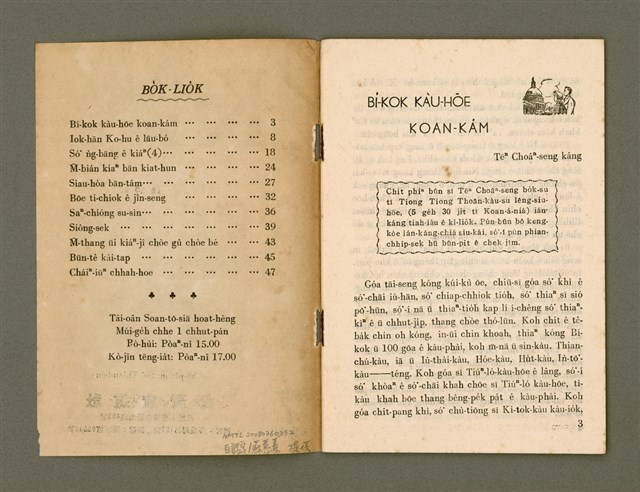 BO̍K-LIO̍K
Bí-kok kàu-hōe koan-kám ··· ··· ··· 3
Iok-hān Ko-hu ê lāu-bó ··· ··· ··· 8
Só͘ ǹg-bāng ê kiáⁿ(4)··· ··· ··· ··· 18
M̄-bián kiaⁿ bān kiat-hun ··· ··· ··· 24
Siau-hòa bān-tâm··· ··· ··· ··· ··· 27
Bōe ti-chiok ê jîn-seng ··· ··· ··· 32
Saⁿ-chióng su-sin··· ··· ··· ··· ··· 36
Siông-sek ··· ··· ··· ··· ··· ··· 39
M̄-thang ūi kiáⁿ-jî chòe gû chòe bé ··· 43
Bûn-tê kái-tap ··· ··· ··· ··· ··· 45
Cháiⁿ-iūⁿ chhah-hoe ··· ··· ··· ··· 47
♣ ♣ ♣
Tâi-oân Soan-tō-siā hoat-hêng
Múi-ge̍h chhe 1 chhut-pán
Pò-hùi: Pòaⁿ-nî 15.00
Kò-jîn tēng-iát: Pòaⁿ-nî 17.00
BÍ-KOK KÀU-HŌE
KOAN-KÁM
Tēⁿ Choâⁿ-seng káng
Chit phiⁿ bûn sī Tēⁿ Choâⁿ-seng bo̍k-su
tī Tiong Tiong Thoân-kàu-su lêng-siu-
hōe, (5 ge̍h 30 ji̍t tī Koan-á-niá) ián-
káng tiah-iàu ê kì-lio̍k. Pún-bûn bô keng-
kòe ián-káng-chiá siu-kái, só͘-í pún phian-
chhip-sek hū būn-pit ê chek-jīm.
Góa tāi-seng kóng kúi-kù ōe, chiū-sī góa só͘ khì ê
só͘-chāi iú-hān, só͘ chiap-chhiok tio̍h, só͘ thiaⁿ sī sió
pō͘-hūn, só͘-í nā ū thiaⁿ-tio̍h kap lí í-chêng só͘ thiaⁿ-
kìⁿ ê ū chhut-ji̍p, thang chòe thó-lūn. Koh chi̍t ê tê-
ba̍k chin oh kóng, in-ūi chin khoah, thiaⁿ kóng Bí-
kok ū 100 gōa ê kàu-phài, koh m̄-nā ū sin-kàu, Thian-
chú-kàu, iā ū Iû-thài-kàu, Hôe-kàu, Hu̍t-kàu, Ìn-tō͘-
kàu——téng. Koh góa sī Tiúⁿ-ló-kàu-hōe ê lâng, só͘-í
só͘ khòaⁿ ê só͘-chāi khah chōe sī Tiúⁿ-ló kàu-hōe, ti-
kàu khah bōe thang bêng-pe̍k pa̍t ê kàu-phài. Koh
góa chi̍t-pang khì, só͘ chú-tiōng sī Ki-tok-kàu kàu-io̍k,
3